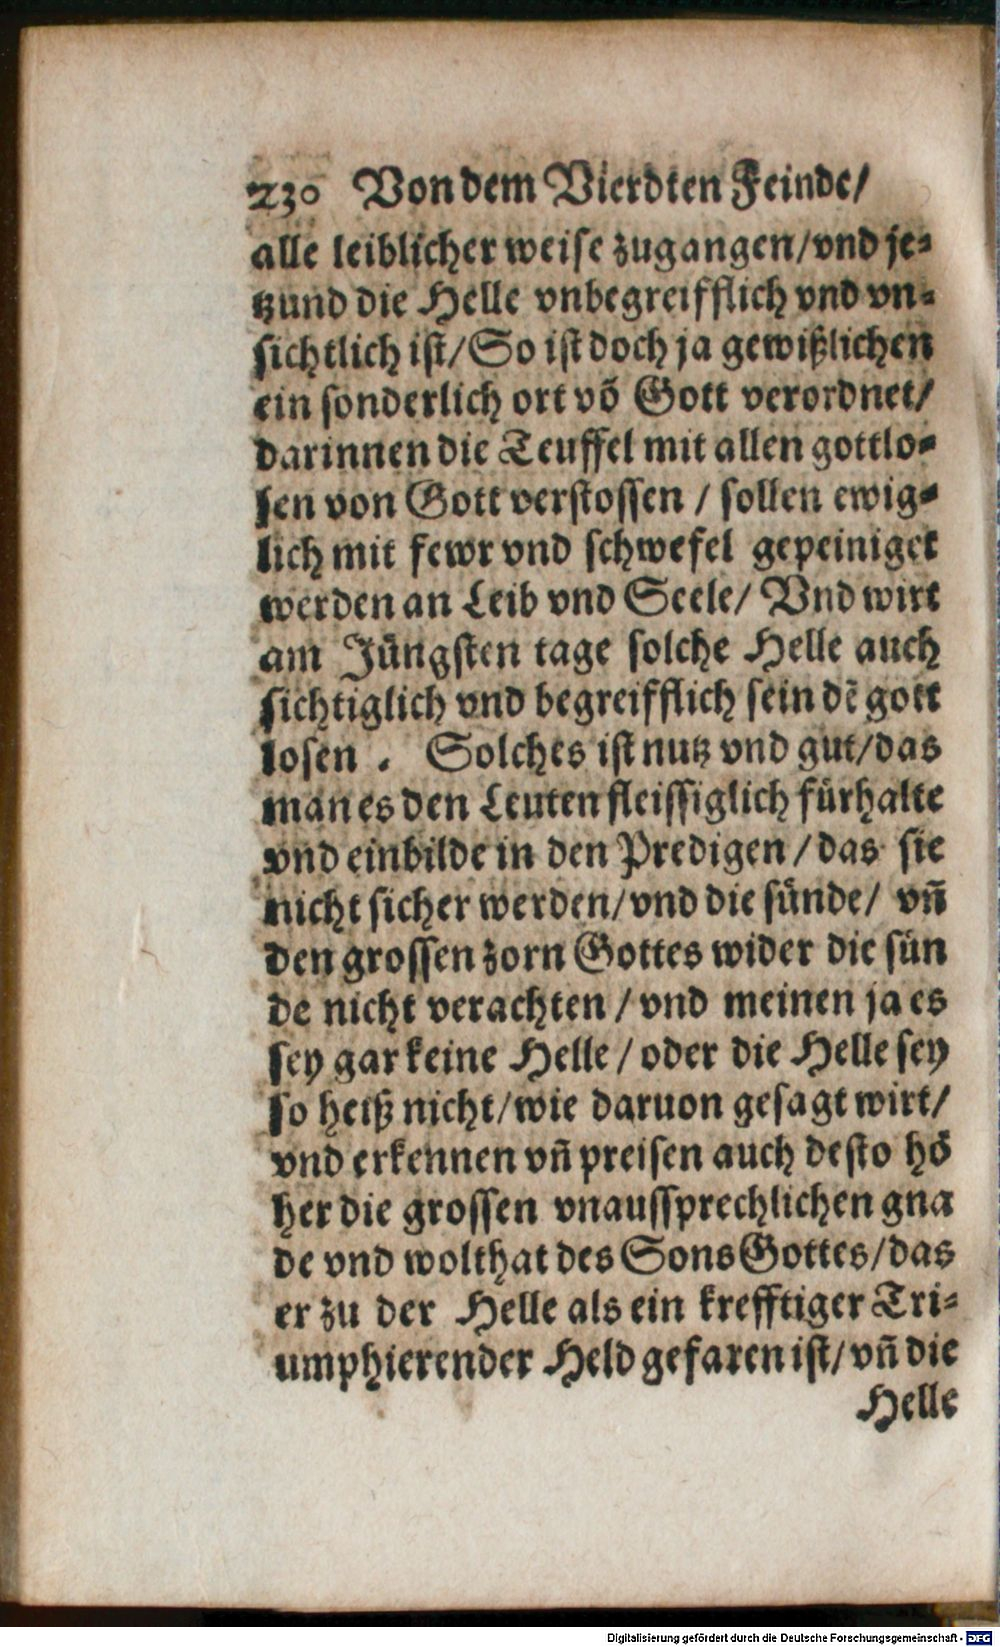 230 Von dem Vierdten Feinde/
alle leiblicher weise zugangen/vnd je⸗
tzund die Helle vnbegreifflich vnd vn⸗
sichtlich ist/So ist doch ja gewißlichen
ein sonderlich ort võ Gott verordnet/
darinnen die Teuffel mit allen gottlo⸗
sen von Gott verstossen / sollen ewig⸗
lich mit fewr vnd schwefel gepeiniget
werden an Leib vnd Seele/ Vnd wirt
am Jüngsten tage solche Helle auch
sichtiglich vnd begreifflich sein dẽ gott
losen . Solches ist nutz vnd gut/das
man es den Leuten fleissiglich fürhalte
vnd einbilde in den Predigen / das sie
nicht sicher werden/vnd die sünde/ vñ
den grossen zorn Gottes wider die sün
de nicht verachten / vnd meinen ja es
sey gar keine Helle / oder die Helle sey
so heiß nicht/wie daruon gesagt wirt/
vnd erkennen vñ preisen auch desto hö
her die grossen vnaussprechlichen gna
de vnd wolthat des Sons Gottes/das
er zu der Helle als ein krefftiger Tri⸗
umphierender Held gefaren ist/vñ die
Helle
Digitalisierung gefördert durch die Deutsche Forschungsgemeinschaft - DFG